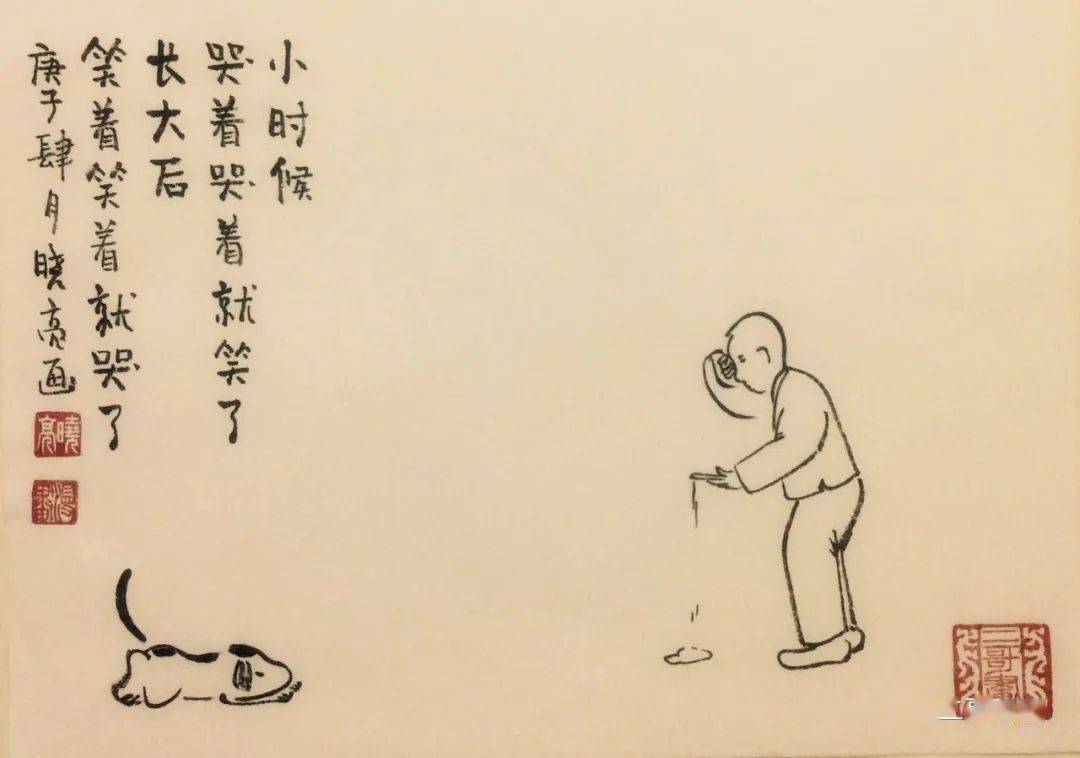 小时候
哭着哭着就笑了
长大后
笑着笑着就哭了
庚子肆月晓亮画
曉亮
三哥畫